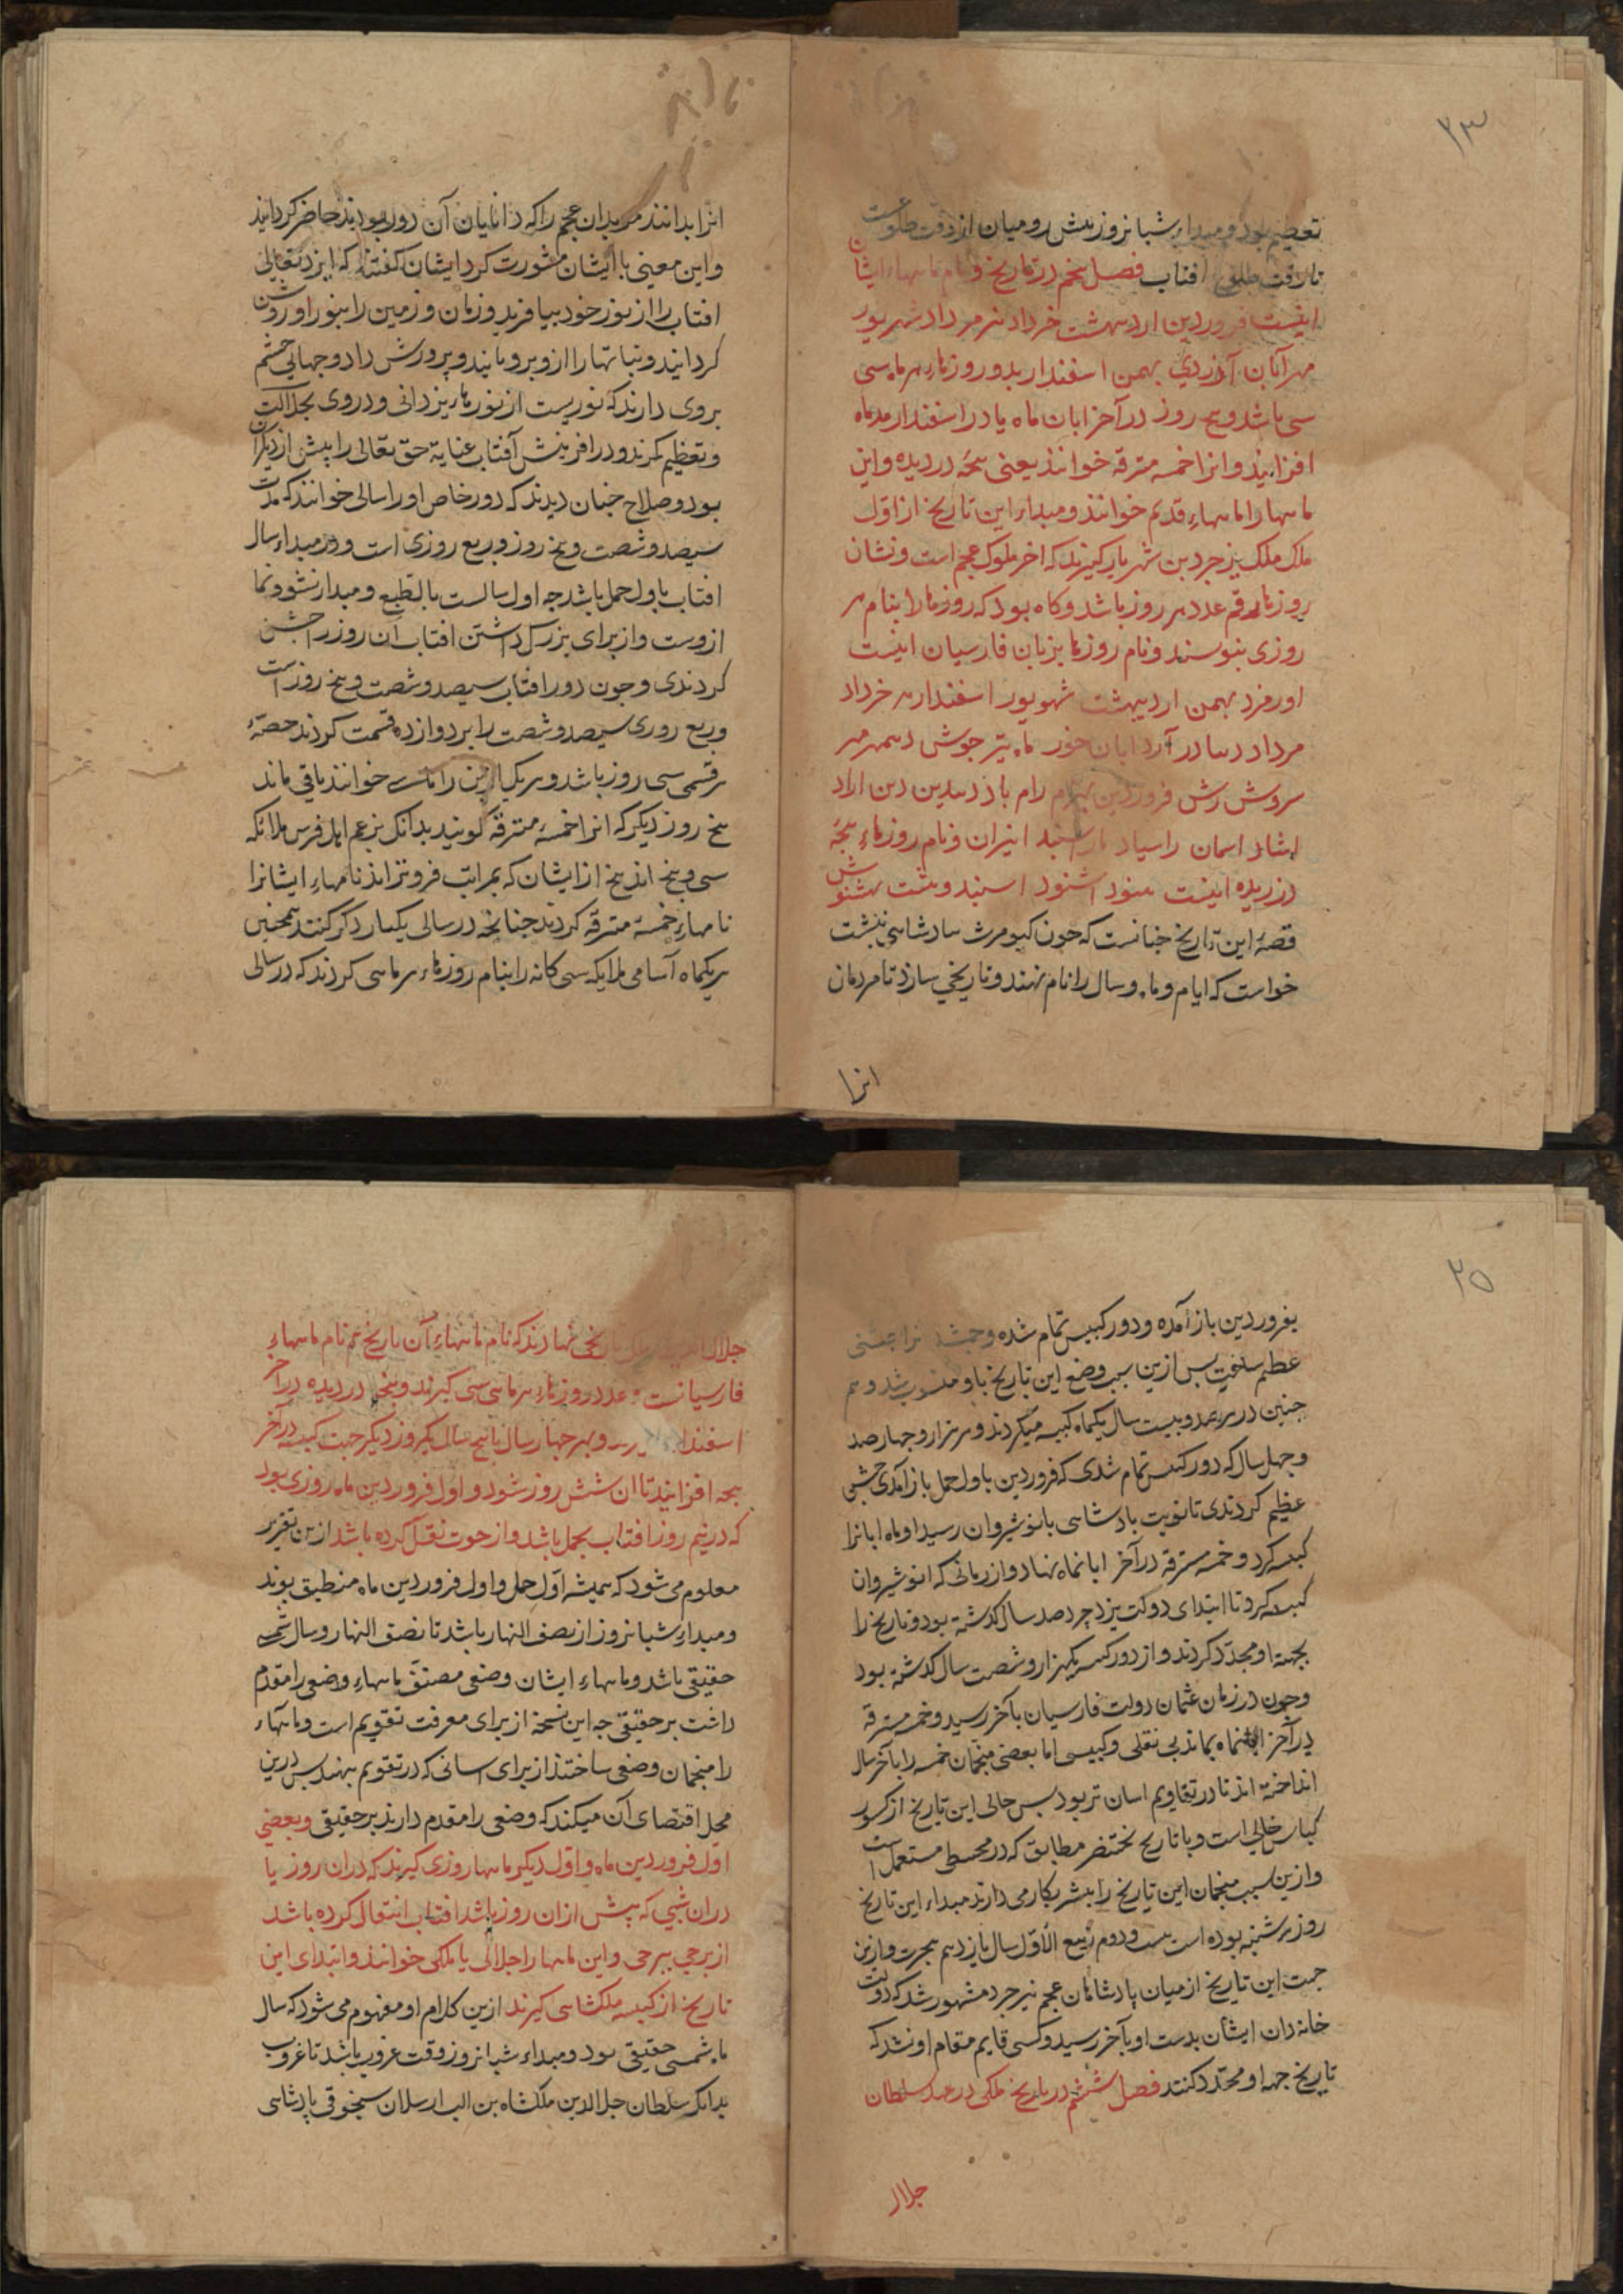 ۲۳
تعظیم بود و مبداء شبانروز پیش رومیان از وقت طلوعست
تا وقت طلوع افتاب فصل پنجم در تاریخ و نام ماههاء ایشان
اینست فروردین اردیبهشت خرداد تیر مرداد شهریور
مهر آبان آذر دی بهمن اسفندارمذ و روزهاء هر ماه سی
سی باشد و پنج روز در آخر ابان ماه یا در اسفندارمذ ماه
افزایند و انرا خمسه مسترقه خوانند یعنی پنجه دزدیده و این
ماهها را ماههاء قدیم خوانند و مبداء این تاریخ از اوّل
ملک ملک یزجرد بن شهریار گیرند که اخر ملوک عجم است و نشان
روزها رقم عدد هر روز باشد و کاه بود که روزها را بنام هر
روزی بنویسند و نام روزها بزبان فارسیان اینست
اورمزد بهمن اردیبهشت شهریور اسفندارمذ خرداد
مرداد دیبادر آذر ابان خور ماه تیر جوش دیبمهر مهر
سروش رش فروردین بهرام رام باد دیبدین دین ارد
اشتاد اسمان رامیاد مارسپند انیران و نام روزهاء پنجه
دزدیده اینست اشنود اسپند وهشت هشتویش
قصهٔ این تاریخ چنانست که چون کیومرث بپادشاهی بنشست
خواست که ایام و ماه و سال را نام نهند و تاریخی سازد تا مردمان
انرا
انرا بدانند موبدان عجم را که دانایان آن دور بودند حاضر کردانید
و این معنی با ایشان مشورت کرد ایشان کفتند که ایزد تعالی
افتاب را از نور خود بیافرید و زمان و زمین را بنور او روشن
کردانید و نباتها را ازو برویانید و پرورش داد و جهانی چشم
بروی دارند که نوریست از نورهاء یزدانی و در وی بجلالت
و تعظیم نکرند و در افرینش آفتاب عنایة حق تعالی را پیش از دیکران
بود و صلاح چنان دیدند که دور خاص او را سالی خوانند که مدت
سیصد و شصت و پنج روز و ربع روزی است و در مبداء سال
افتاب باول حمل باشد چه اول سالست بالطبع و مبداء نشو و نما
ازوست و از برای بزرک داشتن افتاب آن روز را جشن
کردندی و چون دور افتاب سیصد و شصت و پنج روز است
و ربع روزی سیصد و شصت را بر دوازده قسمت کردند حصّهٔ
هر قسمی سی روز باشد و هر یکی ازین را ماهی خوانند باقی ماند
پنج روز دیکر که انرا خمسهٔ مسترقه کویند بدانک بزعم اهل فرس ملائکه
سی و پنج اند پنج از ایشان که بمراتب فروتر اند نامهاء ایشانرا
نامهاء خمسهٔ مسترقه کردند چنانچه در سالی یکبار ذکر کنند همچنین
هر یکماه آسامی ملائکه سی کانه را بنام روزهاء هر ماهی کردند که در سالی
۲۵
بفروردین باز آمده و دور کبیس تمام شده و جمشید انرا جشنی
عظیم ساخت پس ازین سبب وضع این تاریخ باو منسوب شد و هم
چنین در هر صد و بیست سال یکماه کبیسه میکردند و هر هزار و چهار صد
و چهل سال که دور کبیس تمام شدی که فروردین باول حمل باز آمدی جشنی
عظیم کردندی تا نوبت بادشاهی بانوشیروان رسید او ماه ابانرا
کبیسه کرد و خمسه مسترقه در آخر ابانماه نهاد و از زمانی که انوشیروان
کبیسه کرد تا ابتدای دولت یزدجرد صد سال کذشته بود و تاریخ را
بجهة او مجدّد کردند و از دور کبیس یکهزار و شصت سال کذشته بود
و چون در زمان عثمان دولت فارسیان بآخر رسید و خمسه مسترقه
در آخر ابانماه بماند بی نقلی و کبیسی اما بعضی منجمان خمسه را بآخر سال
انداخته اند تا در تقاویم اسان تر بود پس حالی این تاریخ از کسور
کبایس خالی است و با تاریخ بختنصر مطابق که در مجسطی مستعمل است
و ازین سبب منجمان این تاریخ را بیشتر بکار می دارند مبداء این تاریخ
روز سه شنبه بوده است بیست و دوم ربیع الأوّل سال یازدهم هجرت و ازین
جهت این تاریخ از میان پادشاهان عجم بیزجرد مشهور شد که دولت
خاندان ایشان بدست او بآخر رسید و کسی قایم مقام او نشد که
تاریخ بجهة او مجدّد کنند فصل ششم در تاریخ ملکی در عهد سلطان
جلال
جلال الدین ملکشاه تاریخی نهادند که نام ماههاء آن تاریخ هم نام ماههاء
فارسیانست و عدد روزهاء هر ماهی سی گیرند و پنجه دزدیده در آخر
اسفندارمذ و بهر چهار سال یا پنج سال یکروز دیکر جهت کبیسه در آخر
پنجه افزایند تا ان شش روز شود و اول فروردین ماه روزی بود
که در نیم روز افتاب بحمل باشد و از حوت نقل کرده باشد ازین تقریر
معلوم می شود که همیشه اوّل حمل و اول فروردین ماه منطبق بوند
و مبداء شبانروز از نصف النهار باشد تا نصف النهار و سال شمسی
حقیقی باشد و ماههاء ایشان وضعی مصنّف ماههاء وضعی را مقدم
داشت بر حقیقی چه این نسخه از برای معرفت تقویم است و ماههاء
را منجمان وضعی ساختند از برای اسانی که در تقویم بنهند پس درین
محل اقتضای آن میکند که وضعی را مقدم دارند بر حقیقی و بعضی
اوّل فروردین ماه و اوّل دیکر ماهها روزی گیرند که در ان روز یا
در ان شبی که پیش از ان روز باشد افتاب انتقال کرده باشد
از برجی ببرجی و این ماهها را جلالی یا ملکی خوانند و ابتدای این
تاریخ از کبیسه ملکشاهی گیرند ازین کلام او مفهوم می شود که سال
ماه شمسی حقیقی بود و مبداء شبانروز وقت غروب باشد تا غروب
بدانک سلطان جلال الدین ملکشاه بن الب ارسلان سلجوقی پادشاهی